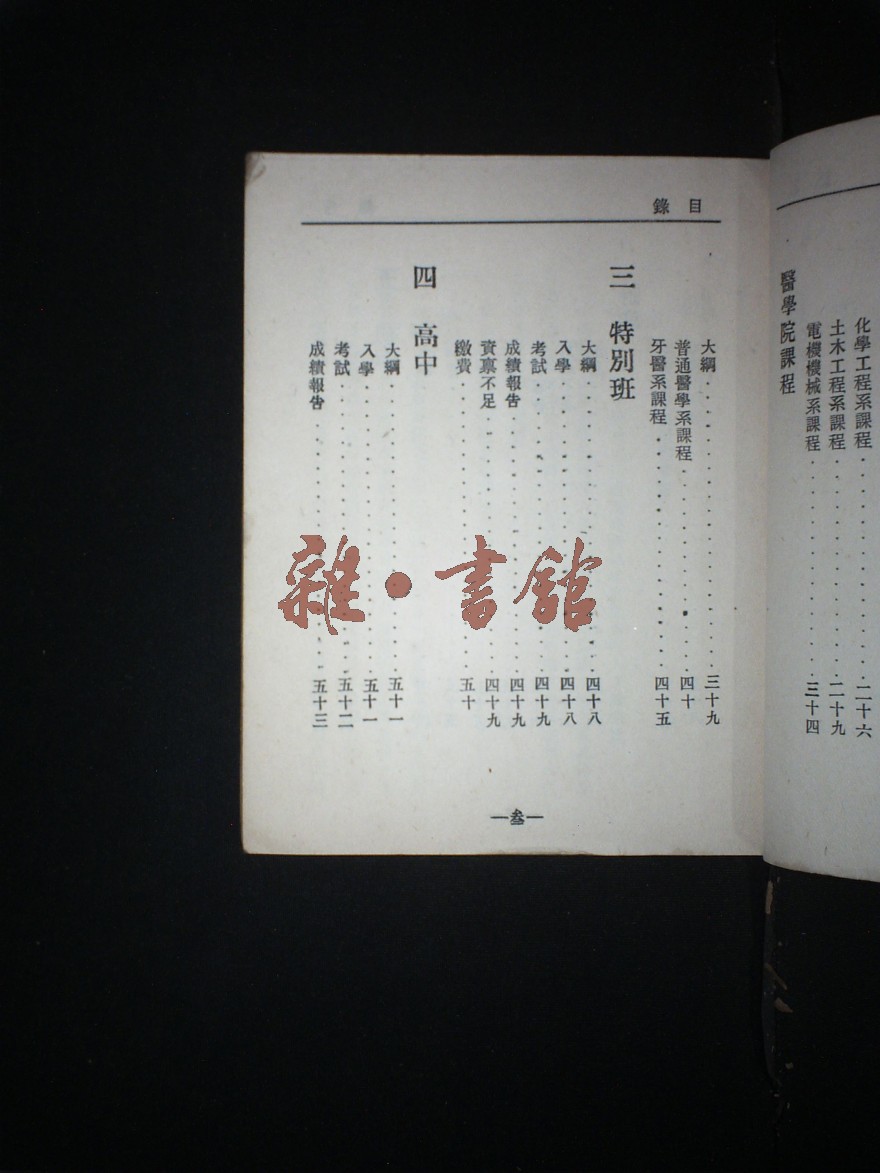 化學工程系課程 二十六
土木工程系課程 二十九
電機機械系課程 三十四
醫學院課程
目錄
大綱 三十九
普通醫學系課程 四十
牙醫系課程 四十五
三 特別班
大綱 四十八
入學 四十八
考試 四十九
成績報告 四十九
資禀不足 四十九
繳費 五十
四 高中
大綱 五十一
入學 五十一
考試 五十二
成績報告 五十三
—叁—
雜·書館